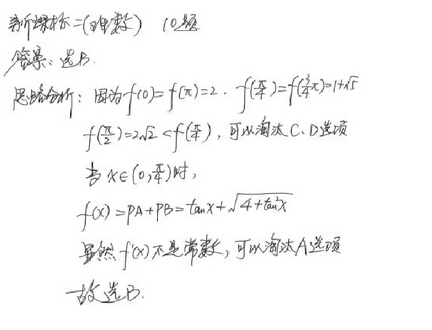 新课标二(理数) 10题
答案:选B.
思路分析:因为f(0)=f(π)=2. f(π/4)=f(3/4π)=1+√5
f(π/2)=2√2<f(π/4),可以淘汰C、D选项
当x∈(0,π/4)时,
f(x)=PA+PB=tanx+√4+tan²x
显然f'(x)不是常数,可以淘汰A选项
故选B.